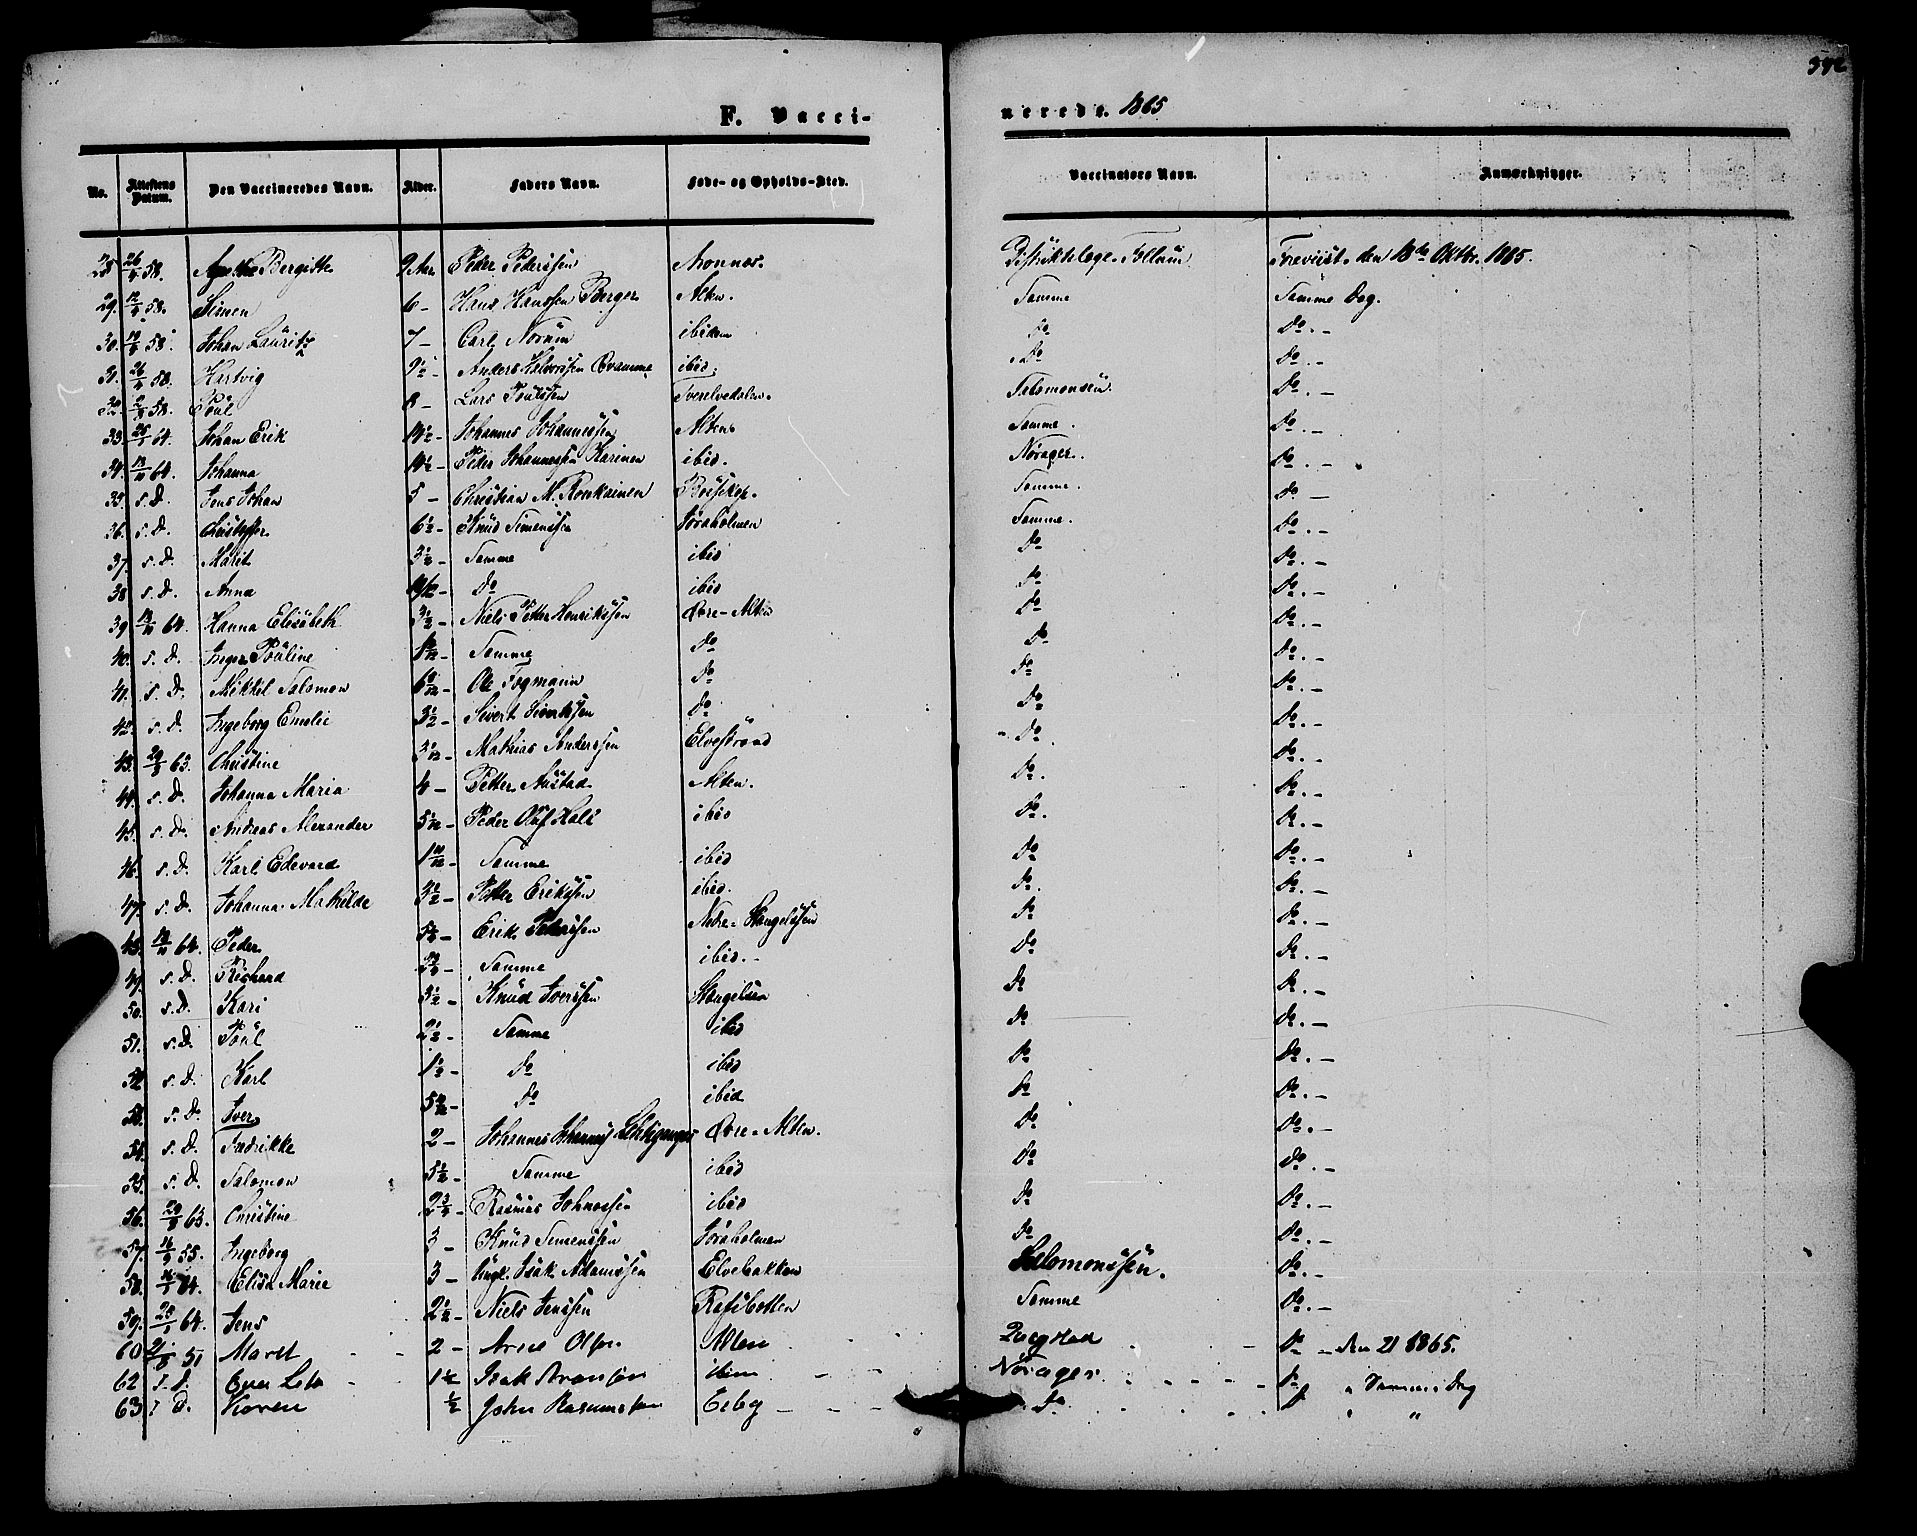 342
F. Vacci-
nerede. 1865
No. Attestens Datum. Den Vaccineredes Navn. Alder. Faders Navn. Føde- og Opholds-Sted. Vaccinators Navn. Anmærkninger.
28 26/9 58. Bergitte 9 Aar Peder Pederssen Distriktslæge Follum Foreviist den 18de Oktbr. 1865.
29. 58. Simen 6 - Hans Hanssen Berger Alten. Samme Samme Dag.
30. 58 Johan Lauritz 7 - Carl Norum ibidem Do Do. -
31. 26/9 58. Hartvig 9 1/2 - Anders Halvorssen Qvamme ibid. Do Do. -
32. 58. Poul 8 - Lars Poulssen Tverelvedalen. Salomonsen Do. -
33. 25/1 64. Johan Erik Johannes Johannessen Alten. Samme. Do. -
34. 64. Johanna Peder Johannessen Karinen ibid. Norager. Do. -
35. s. D. Jens Johan 5 - Christian M. Ronkainen Bossekop. Samme. Do -
36. s. D. Christoffer 6 1/2 - Knud Simenssen Joraholmen Samme. Do. -
37. s. D. Marit 3 1/2 - Samme ibid Do Do. -
38 s. D. Anna Do ibid Do Do. -
39 64. Hanna Elisabeth 3 1/2 - Niels Petter Henrikssen Øvre-Alten Do Do. -
40. s. D. Inger Pauline Samme Do Do Do. -
41. s. D. Mikkel Salomon Ole Fogmann Do Do Do. -
42. s. D. Ingeborg Emelie 3 1/2 - Sivert Sivertssen Do Do Do. -
43. 63. Christine Mathias Anderssen Elvestrand Do Do. -
44. s. D. Johanna Maria 4 - Petter Aastad Alten. Do. Do. -
45. s. D. Andreas Alexander Peder Oluf Hall ibid Do. Do. -
46. s. D. Karl Edevard Samme ibid Do Do. -
47. s. D. Johanna Mathilde 3 1/2 - Petter Erikssen ibid. Do. Do. -
48. 64. Peder Erik Pederssen Nedre-Stengelssen Do Do. -
49. s. D. Richard Samme ibid. - Do Do. -
50. s. D. Kari 3 1/2 - Knud Iverssen Stengelsen Do Do. -
51. s. D. Poul 2 1/2 - Samme ibid Do Do. -
52. s. D. Karl 1 1/2 - Do ibid Do Do. -
53. s. D. Iver Do ibid Do Do. -
54. s. D. Fredrikke 2 - Johannes Øvre-Alten. Do Do. -
55. s. D. Salomon 5 1/2 - Samme ibid Do Do. -
56. 63. Christine Rasmus Johnssen ibid Do Do. -
57. 16/9 55. Ingeborg 3 - Knud Simenssen Joraholmen Do Do. -
58. 64. Elisa Marie 3 - Ungk. Isak Adamssen Elvebakken Salomonssen. Do. -
59. 25/1 64. Jens 2 1/2 - Niels Jenssen Rafsbotten Samme Do. -
60 51 Maret 2 - Arne Olsen Alten Do - den 21 1865.
62 s. D. Isak ibim Norager Do " Samme Dag
63 s. D. Karen 1/2 John Eiby Do "